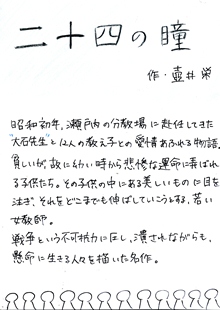 二十四の瞳
作・壺井栄
昭和初年、瀬戸内の分教場に赴任してきた
"大石先生"と12人の教え子との愛情あふれる物語。
貧しいが故に幼い時から悲惨な運命に弄ばれ
る子供たち。その子供の中にある美しいものに目を
注ぎ、それをどこまでも伸ばしていこうとする、若い
女教師。
戦争という不可抗力に圧し潰されながらも、
懸命に生きる人々を描いた名作。